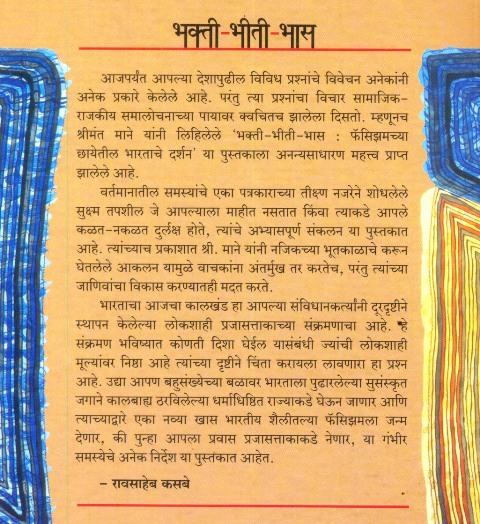 भक्ती-भीती-भास
आजपर्यंत आपल्या देशापुढील विविध प्रश्नांचे विवेचन अनेकांनी
अनेक प्रकारे केलेले आहे. परंतु त्या प्रश्नांचा विचार सामाजिक-
राजकीय समालोचनाच्या पायावर क्वचितच झालेला दिसतो. म्हणूनच
श्रीमंत माने यांनी लिहिलेले 'भक्ती-भीती-भास : फॅसिझमच्या
छायेतील भारताचे दर्शन' या पुस्तकाला अनन्यसाधारण महत्त्व प्राप्त
झालेले आहे.
वर्तमानातील समस्यांचे एका पत्रकाराच्या तीक्ष्ण नजरेने शोधलेले
सुक्ष्म तपशील जे आपल्याला माहीत नसतात किंवा त्याकडे आपले
कळत-नकळत दुर्लक्ष होते, त्यांचे अभ्यासपूर्ण संकलन या पुस्तकात
आहे. त्यांच्याच प्रकाशात श्री. माने यांनी नजिकच्या भूतकाळाचे करून
घेतलेले आकलन यामुळे वाचकांना अंतर्मुख तर करतेच, परंतु त्यांच्या
जाणिवांचा विकास करण्यातही मदत करते.
भारताचा आजचा कालखंड हा आपल्या संविधानकर्त्यांनी दूरदृष्टीने
स्थापन केलेल्या लोकशाही प्रजासत्ताकाच्या संक्रमणाचा आहे. हे
संक्रमण भविष्यात कोणती दिशा घेईल यासंबंधी ज्यांची लोकशाही
मूल्यांवर निष्ठा आहे त्यांच्या दृष्टीने चिंता करायला लावणारा हा प्रश्न
आहे. उद्या आपण बहुसंख्येच्या बळावर भारताला पुढारलेल्या सुसंस्कृत
जगाने कालबाह्य ठरविलेल्या धर्माधिष्ठित राज्याकडे घेऊन जाणार आणि
त्याच्याद्वारे एका नव्या खास भारतीय शैलीतल्या फॅसिझमला जन्म
देणार, की पुन्हा आपला प्रवास प्रजासत्ताकाकडे नेणार, या गंभीर
समस्येचे अनेक निर्देश या पुस्तकात आहेत.
– रावसाहेब कसबे